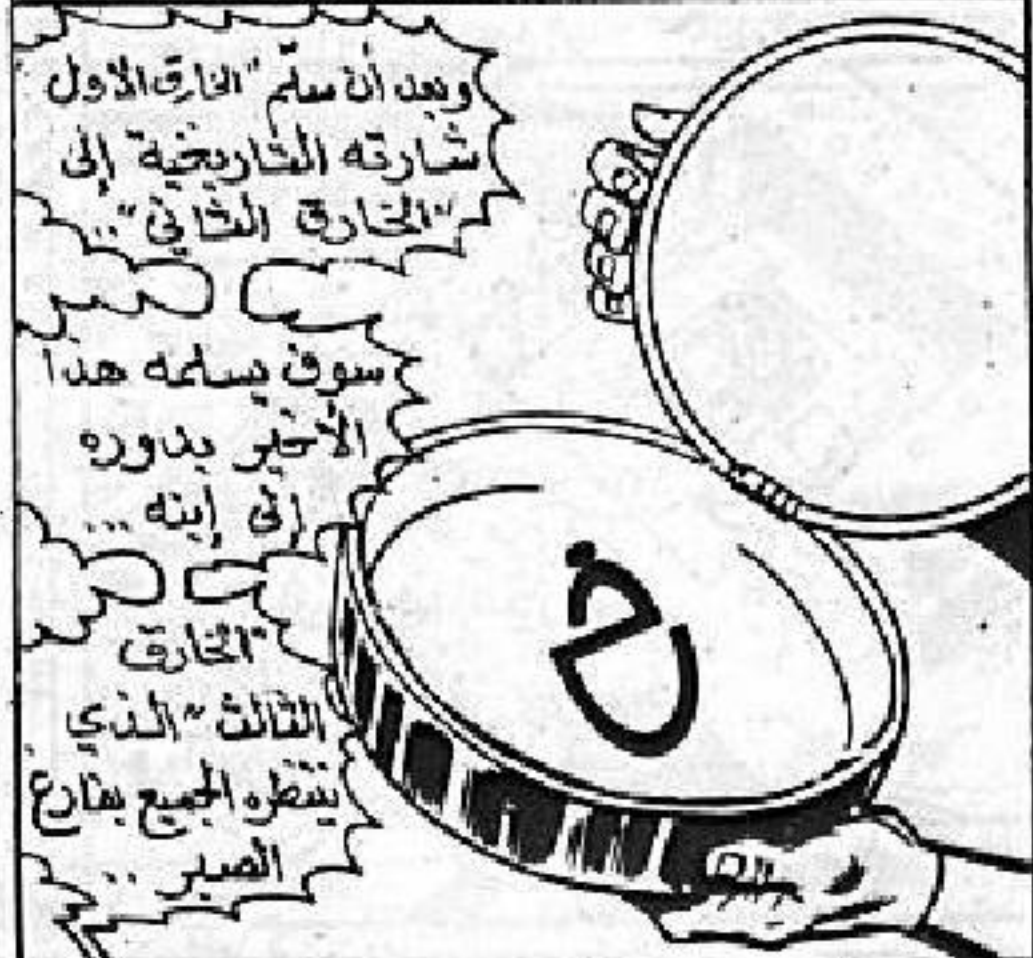 وبعد أن سلّم "الخارق الأول
شارته التاريخية إلى
"الخارق الثاني"..
سوف يسلمه هذا
الأخير بدوره
إلى إبنه ...
"الخارق
الثالث" الذي
ينتظره الجميع بفارغ
الصبر ..
خ